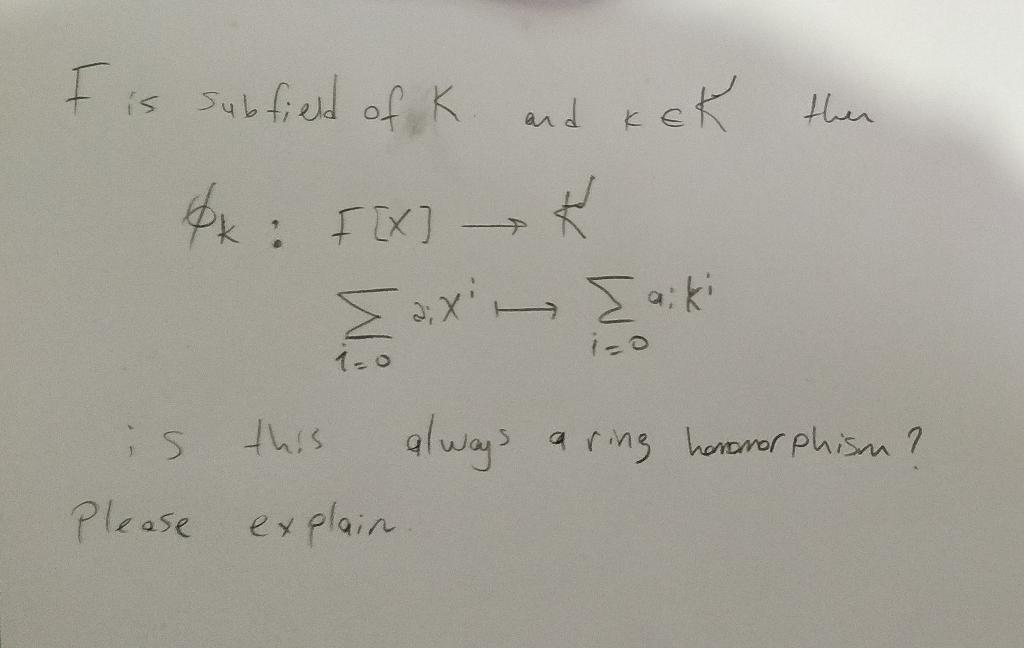 F is subfield of K and k ∈ K then
ϕk : F[X] → K
∑ aiX^i ↦ ∑ aik^i
i=0 i=0
is this always a ring homomorphism?
Please explain.